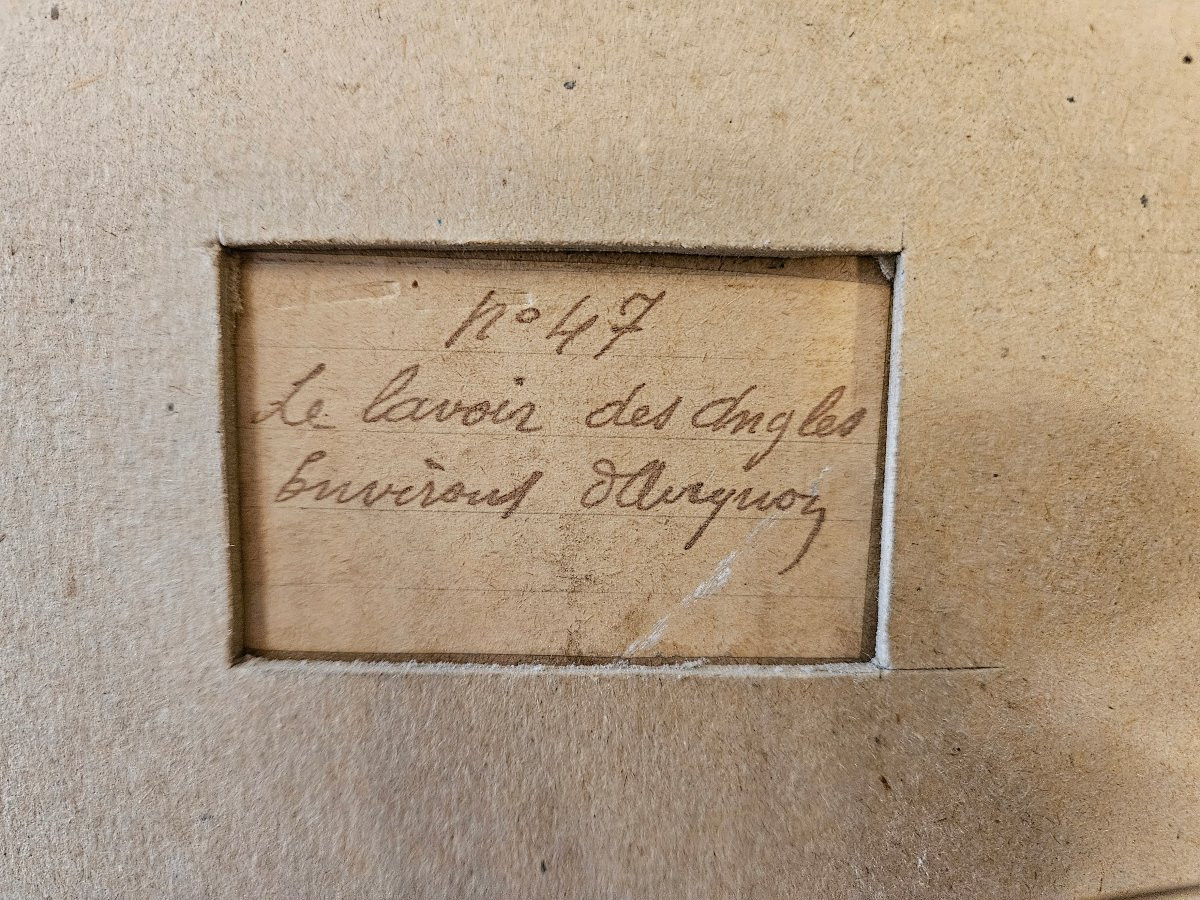 n° 47
Le lavoir des Angles
Environs d'Avignon